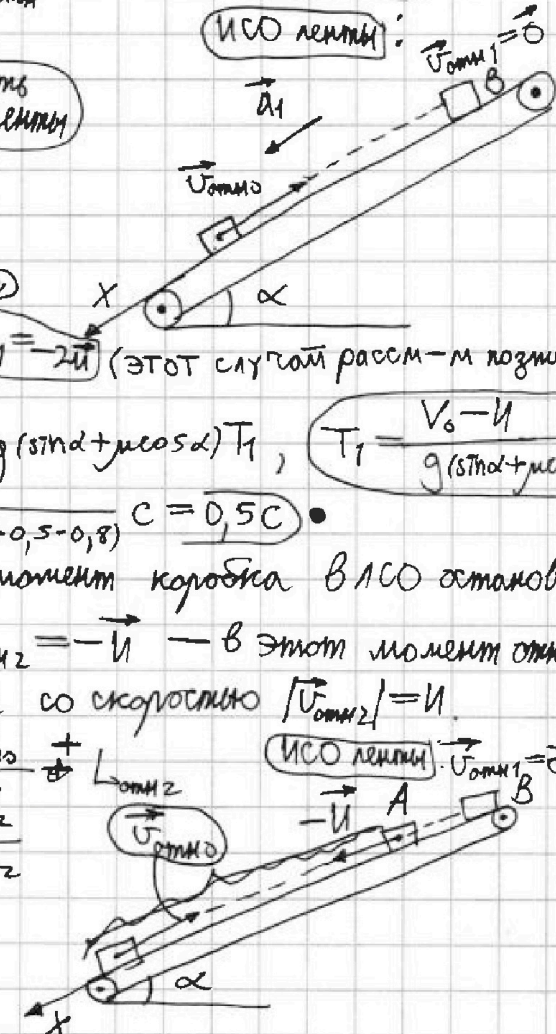 ИСО ленты :
v⃗отн1 = 0⃗
B
ленты
a⃗1
v⃗отн0
X
α
= -2u⃗ (этот случай рассм-м
g(sinα+μcosα)T1, T1 = V0 - U / g(sinα+μc
-0,5-0,8) с = 0,5с •
момент коробка в ЛСО останов
= -u⃗ — в этот момент отн
со скоростью |v⃗отн2| = U.
+ Lотн2
ИСО ленты: v⃗отн1 =
-u⃗ A B
v⃗отн0
α
X